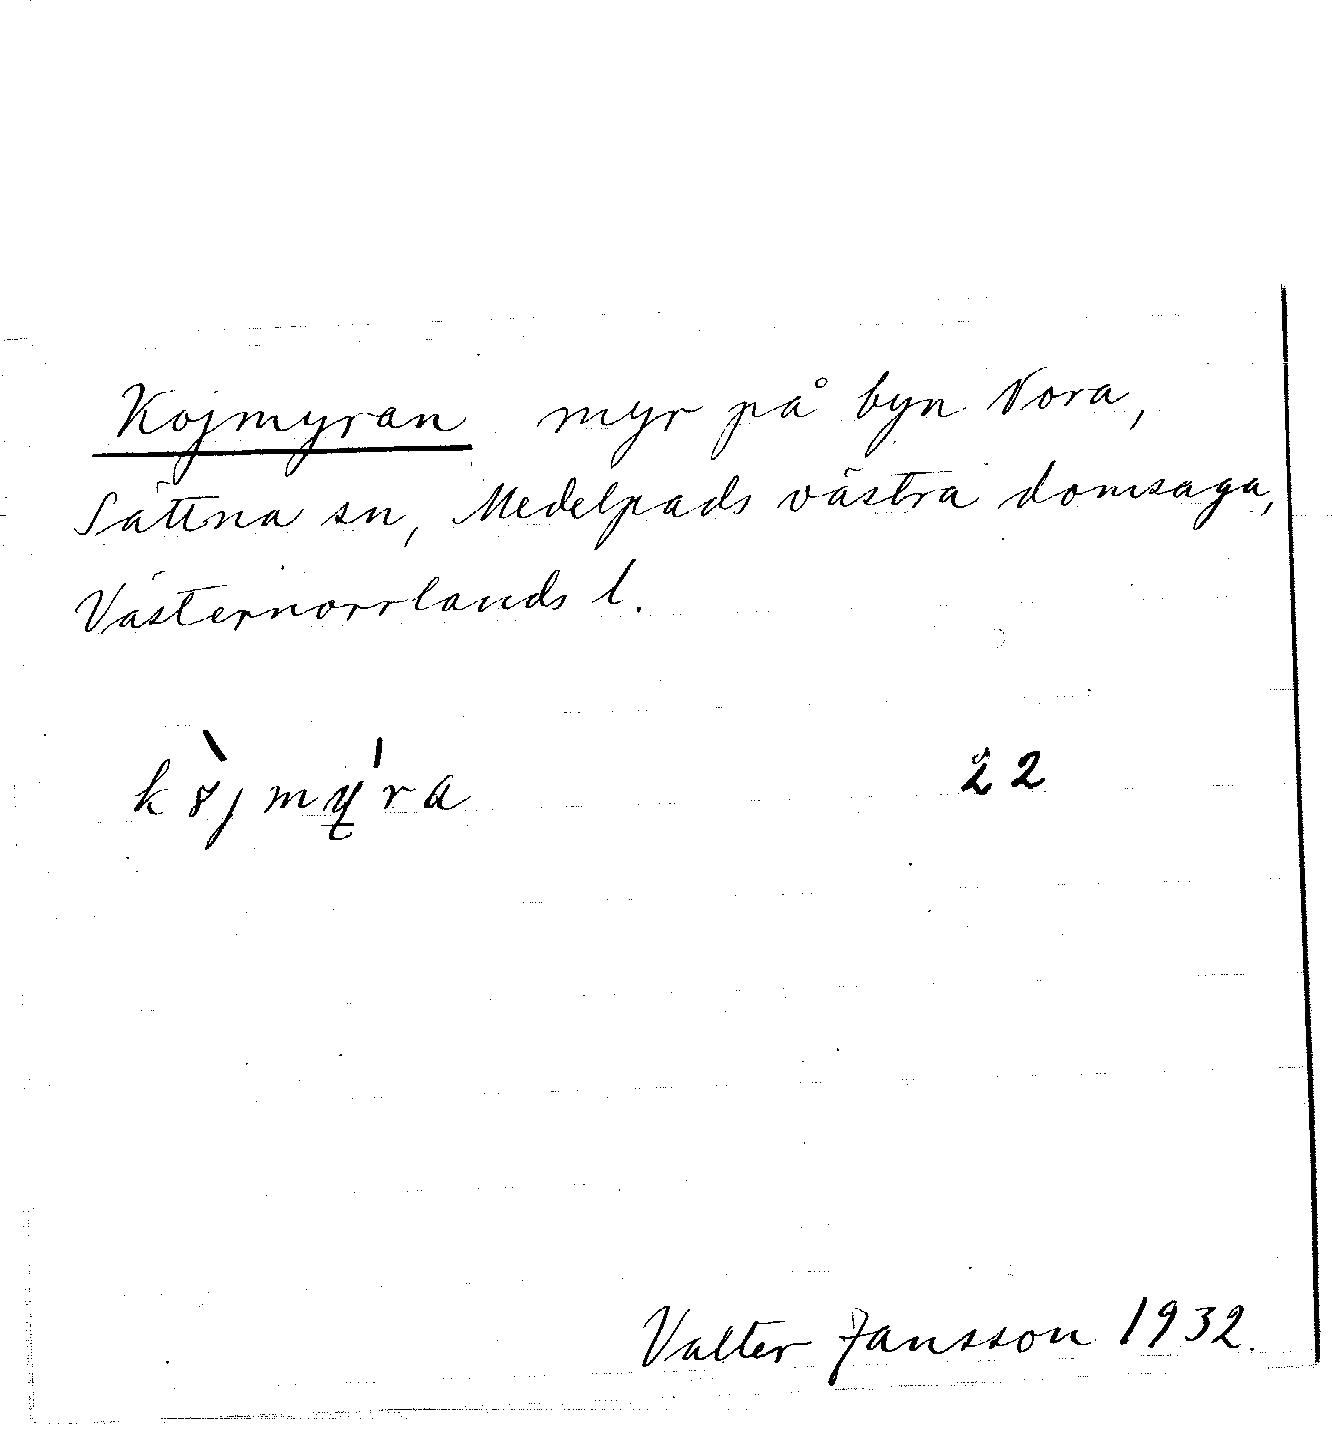 Kojmyran myr på byn Nora,
Sättna sn, Medelpads västra domsaga,
Västernorrlands l.
22
Valter Jansson 1932.